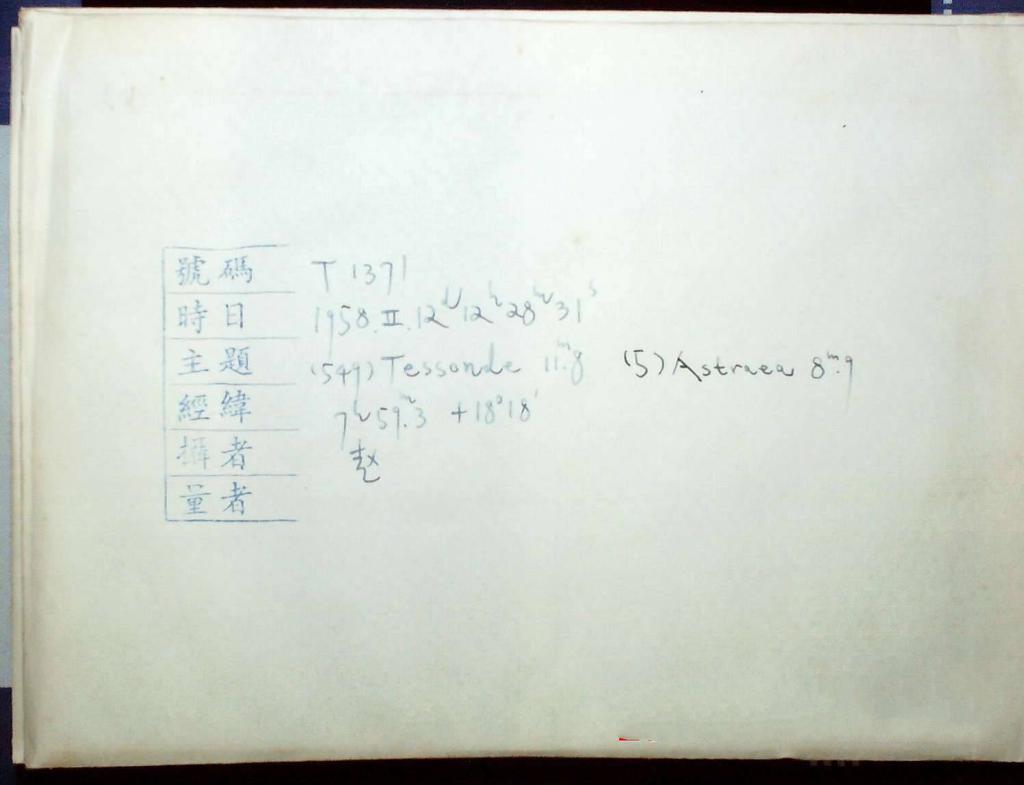 號碼 T 1371
時日 1958.II.12ᵈ12ʰ28ᵐ31ˢ
主題 (549) Tessonde 11ᵐ.8 (5) Astraea 8ᵐ.9
經緯 7ʰ59ᵐ.3 +18°18'
攝者 赵
量者